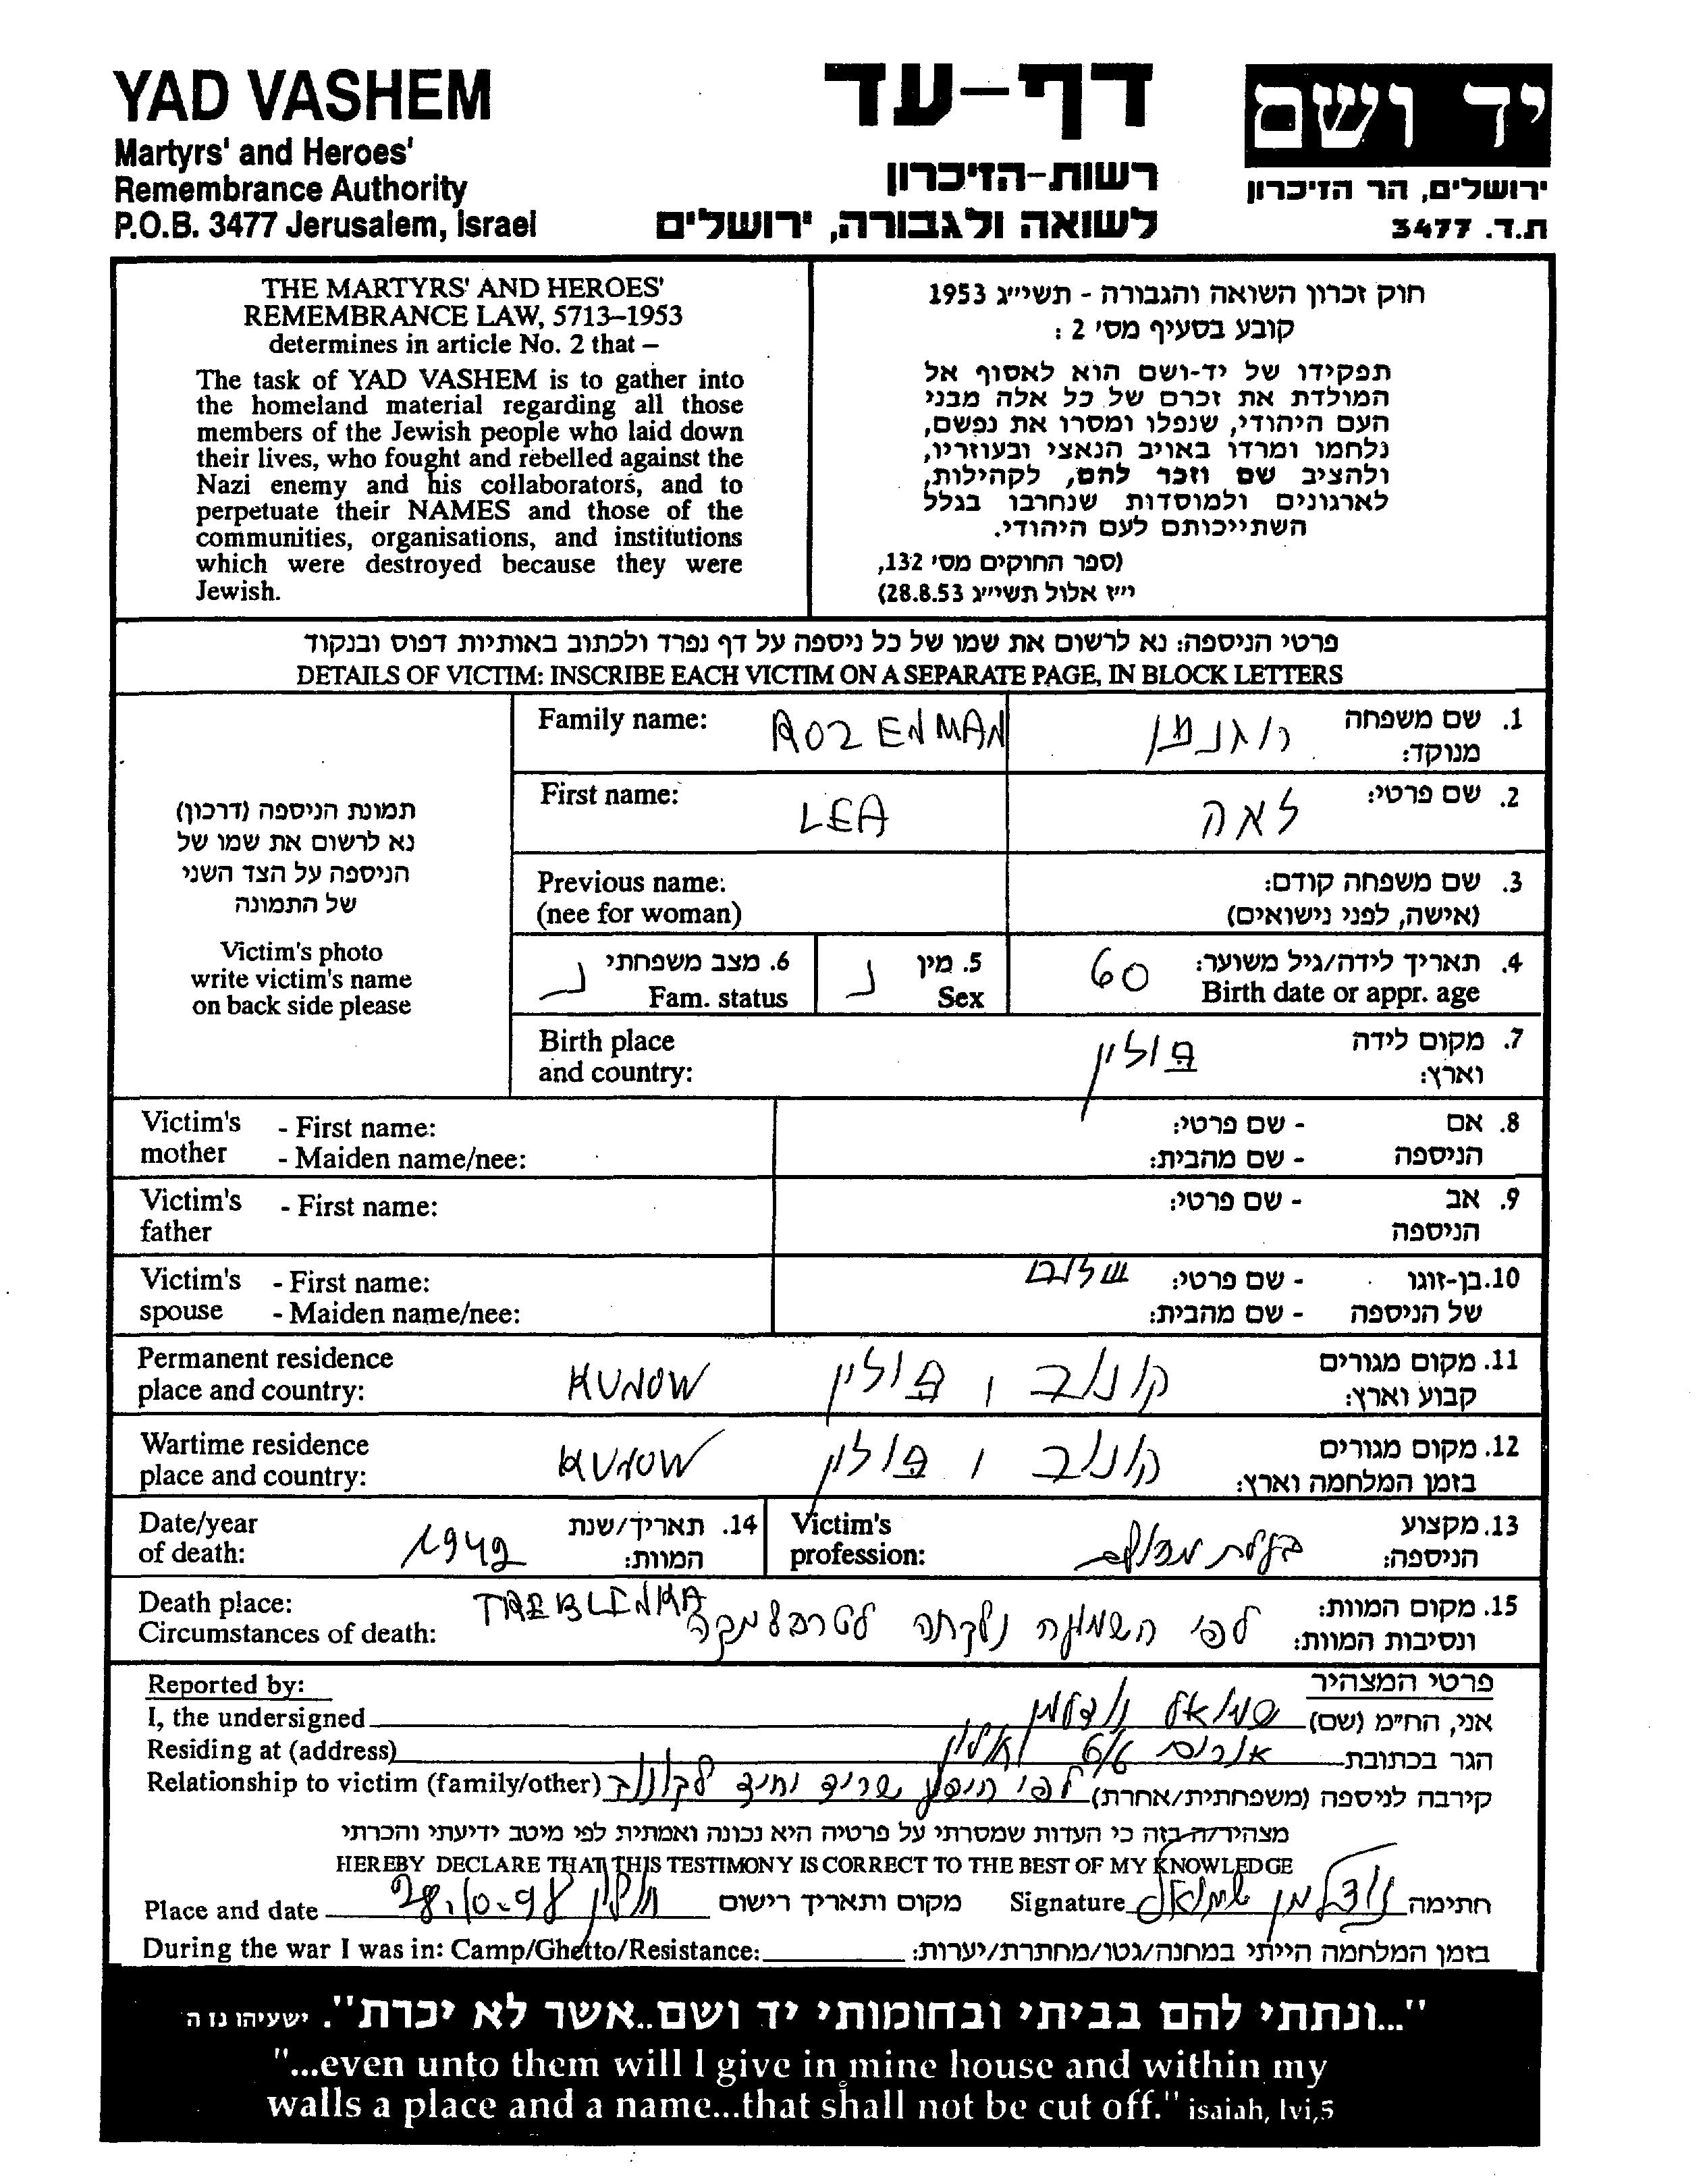 YAD VASHEM
Martyrs' and Heroes'
Remembrance Authority
P.O.B. 3477 Jerusalem, Israel
דף-עד
רשות-הזיכרון
לשואה ולגבורה, ירושלים
יד ושם
ירושלים, הר הזיכרון
ת.ד. 3477
THE MARTYRS' AND HEROES'
REMEMBRANCE LAW, 5713–1953
determines in article No. 2 that –
The task of YAD VASHEM is to gather into
the homeland material regarding all those
members of the Jewish people who laid down
their lives, who fought and rebelled against the
Nazi enemy and his collaborators, and to
perpetuate their NAMES and those of the
communities, organisations, and institutions
which were destroyed because they were
Jewish.
חוק זכרון השואה והגבורה - תשי״ג 1953
קובע בסעיף מס׳ 2 :
תפקידו של יד-ושם הוא לאסוף אל
המולדת את זכרם של כל אלה מבני
העם היהודי, שנפלו ומסרו את נפשם,
נלחמו ומרדו באויב הנאצי ובעוזריו,
ולהציב שם וזכר להם, לקהילות,
לארגונים ולמוסדות שנחרבו בגלל
השתייכותם לעם היהודי.
(ספר החוקים מס׳ 132,
י״ז אלול תשי״ג 28.8.53)
פרטי הניספה: נא לרשום את שמו של כל ניספה על דף נפרד ולכתוב באותיות דפוס ובנקוד
DETAILS OF VICTIM: INSCRIBE EACH VICTIM ON A SEPARATE PAGE, IN BLOCK LETTERS
תמונת הניספה (דרכון)
נא לרשום את שמו של
הניספה על הצד השני
של התמונה
Victim's photo
write victim's name
on back side please
Family name: ROZENMAN
1. שם משפחה רוזנמן
מנוקד:
First name: LEA
2. שם פרטי: לאה
Previous name:
(nee for woman)
3. שם משפחה קודם:
(אישה, לפני נישואים)
4. תאריך לידה/גיל משוער: 60
Birth date or appr. age
5. מין נ
Sex
6. מצב משפחתי נ
Fam. status
Birth place
and country:
7. מקום לידה פולין
וארץ:
Victim's - First name:
mother - Maiden name/nee:
8. אם - שם פרטי:
הניספה - שם מהבית:
Victim's - First name:
father
9. אב - שם פרטי:
הניספה
Victim's - First name:
spouse - Maiden name/nee:
10. בן-זוגו - שם פרטי: שלום
של הניספה - שם מהבית:
Permanent residence
place and country: KUNOW
11. מקום מגורים קונוב , פולין
קבוע וארץ:
Wartime residence
place and country: KUNOW
12. מקום מגורים קונוב , פולין
בזמן המלחמה וארץ:
Date/year
of death: 1942
14. תאריך/שנת
המוות:
Victim's
profession:
13. מקצוע
הניספה: בעלת
Death place: TREBLINKA
Circumstances of death:
15. מקום המוות:
ונסיבות המוות: לפי השמועה נלקחה לטרבלינקה
Reported by:
פרטי המצהיר
I, the undersigned
אני, החי״מ (שם) שמואל נודלמן
Residing at (address)
הגר בכתובת אורנים 6/6 חולון
Relationship to victim (family/other)
קירבה לניספה (משפחתית/אחרת) שריד יחיד לקונוב
מצהיר/ה בזה כי העדות שמסרתי על פרטיה היא נכונה ואמתית לפי מיטב ידיעתי והכרתי
HEREBY DECLARE THAT THIS TESTIMONY IS CORRECT TO THE BEST OF MY KNOWLEDGE
Place and date 28.10.98 חולון מקום ותאריך רישום
Signature נודלמן שמואל חתימה
During the war I was in: Camp/Ghetto/Resistance:
בזמן המלחמה הייתי במחנה/גטו/מחתרת/יערות:
"...ונתתי להם בביתי ובחומותי יד ושם..אשר לא יכרת". ישעיהו נז ה
"...even unto them will I give in mine house and within my
walls a place and a name...that shall not be cut off." isaiah, lvi,5